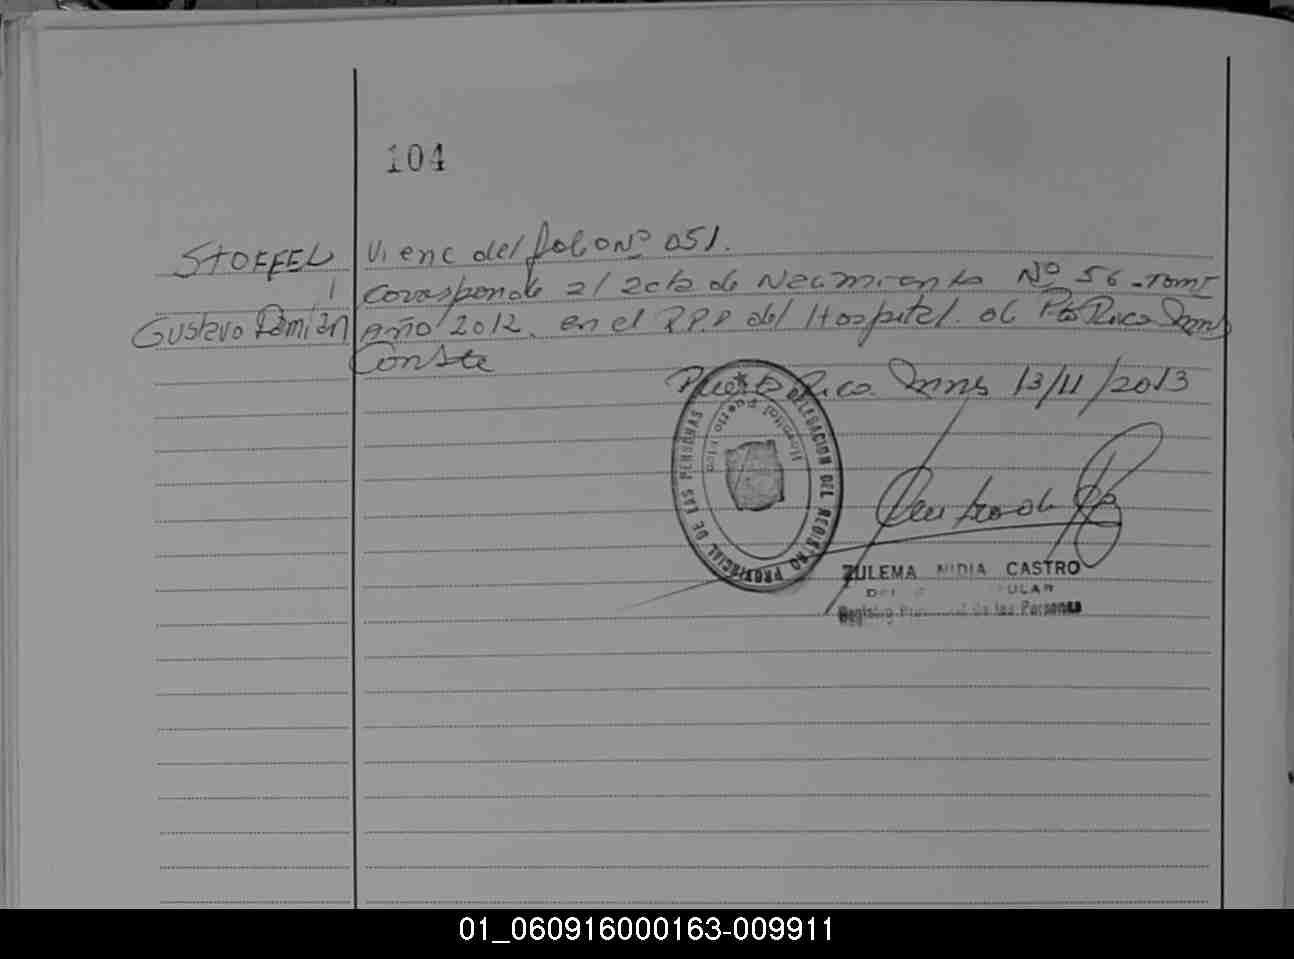 104
STOFFEL
Gustavo Damián
Viene del folio Nº 051.
Corresponde al acta de Nacimiento Nº 56 - Tom I
Año 2012. en el R.P.P del Hospital. de Pto Rico Mnes
Conste
Puerto Rico. Mnes 13/11/2013
DELEGACION DEL REGISTRO PROVINCIAL DE LAS PERSONAS
Hospital Puerto Rico
ZULEMA NIDIA CASTRO
Registro de las Personas
01_060916000163-009911